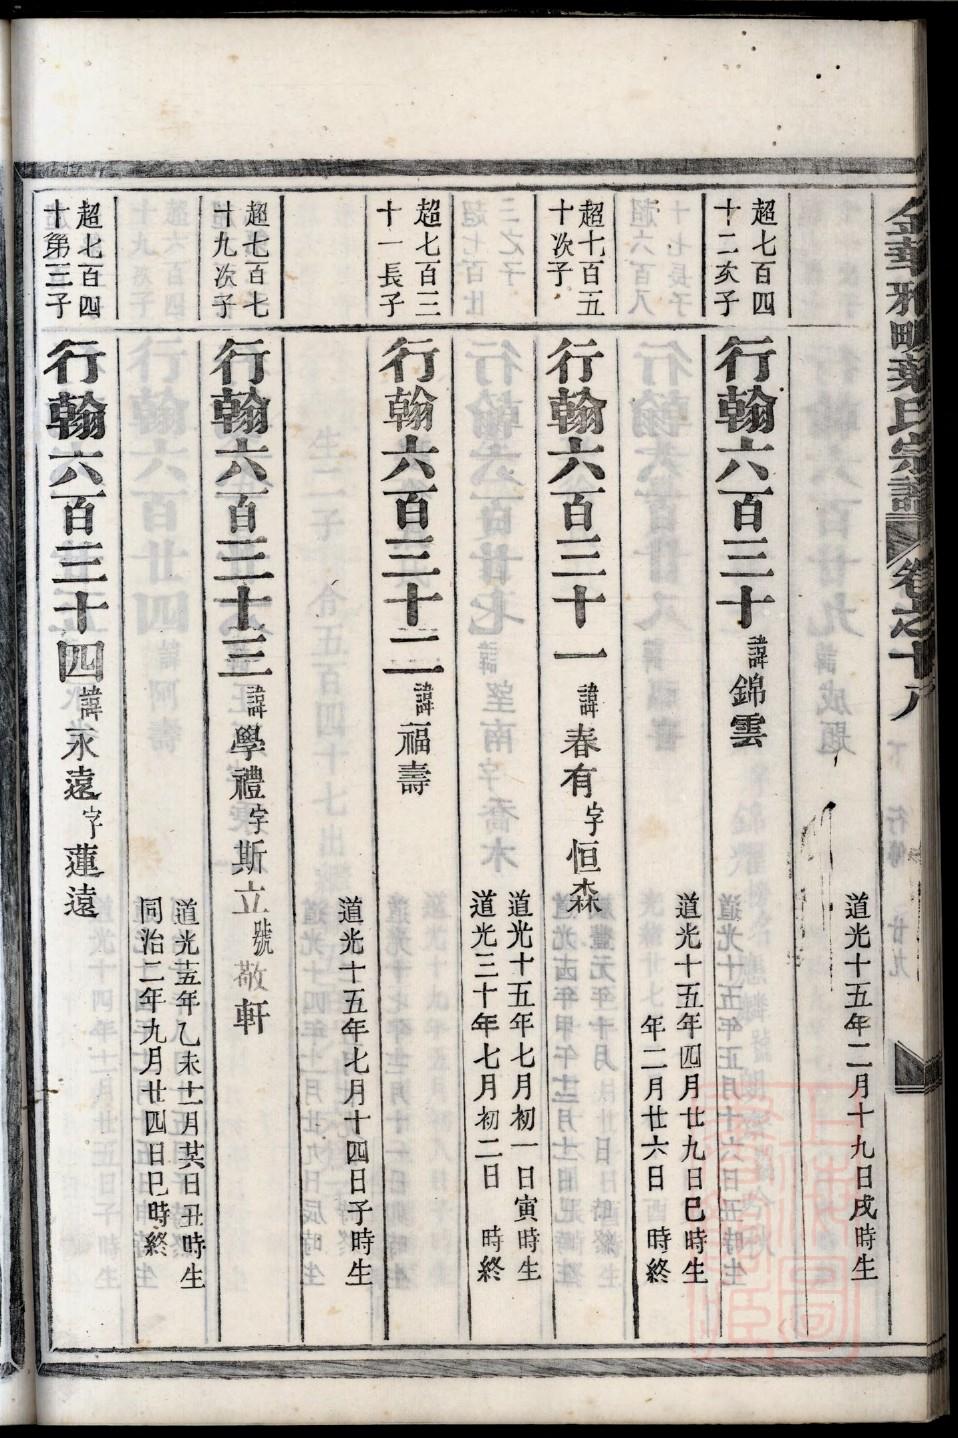 金華雅畈葉氏宗譜 卷之十八 下 行傳 廿九
道光十五年二月十九日戌時生
超七百四十二次子
行翰六百三十 諱錦雲
道光十五年四月廿九日巳時生
年二月廿六日 時終
超十百五十次子
行翰六百三十一 諱春有字恒森
道光十五年七月初一日寅時生
道光三十年七月初二日 時終
超七百三十一長子
行翰六百三十二 諱福壽
道光十五年七月十四日子時生
超七百七十九次子
行翰六百三十三 諱學禮字斯立號敬軒
道光十五年乙未十一月廿六日丑時生
同治二年九月廿四日巳時終
超七百四十第三子
行翰六百三十四 諱永遠字蓮遠